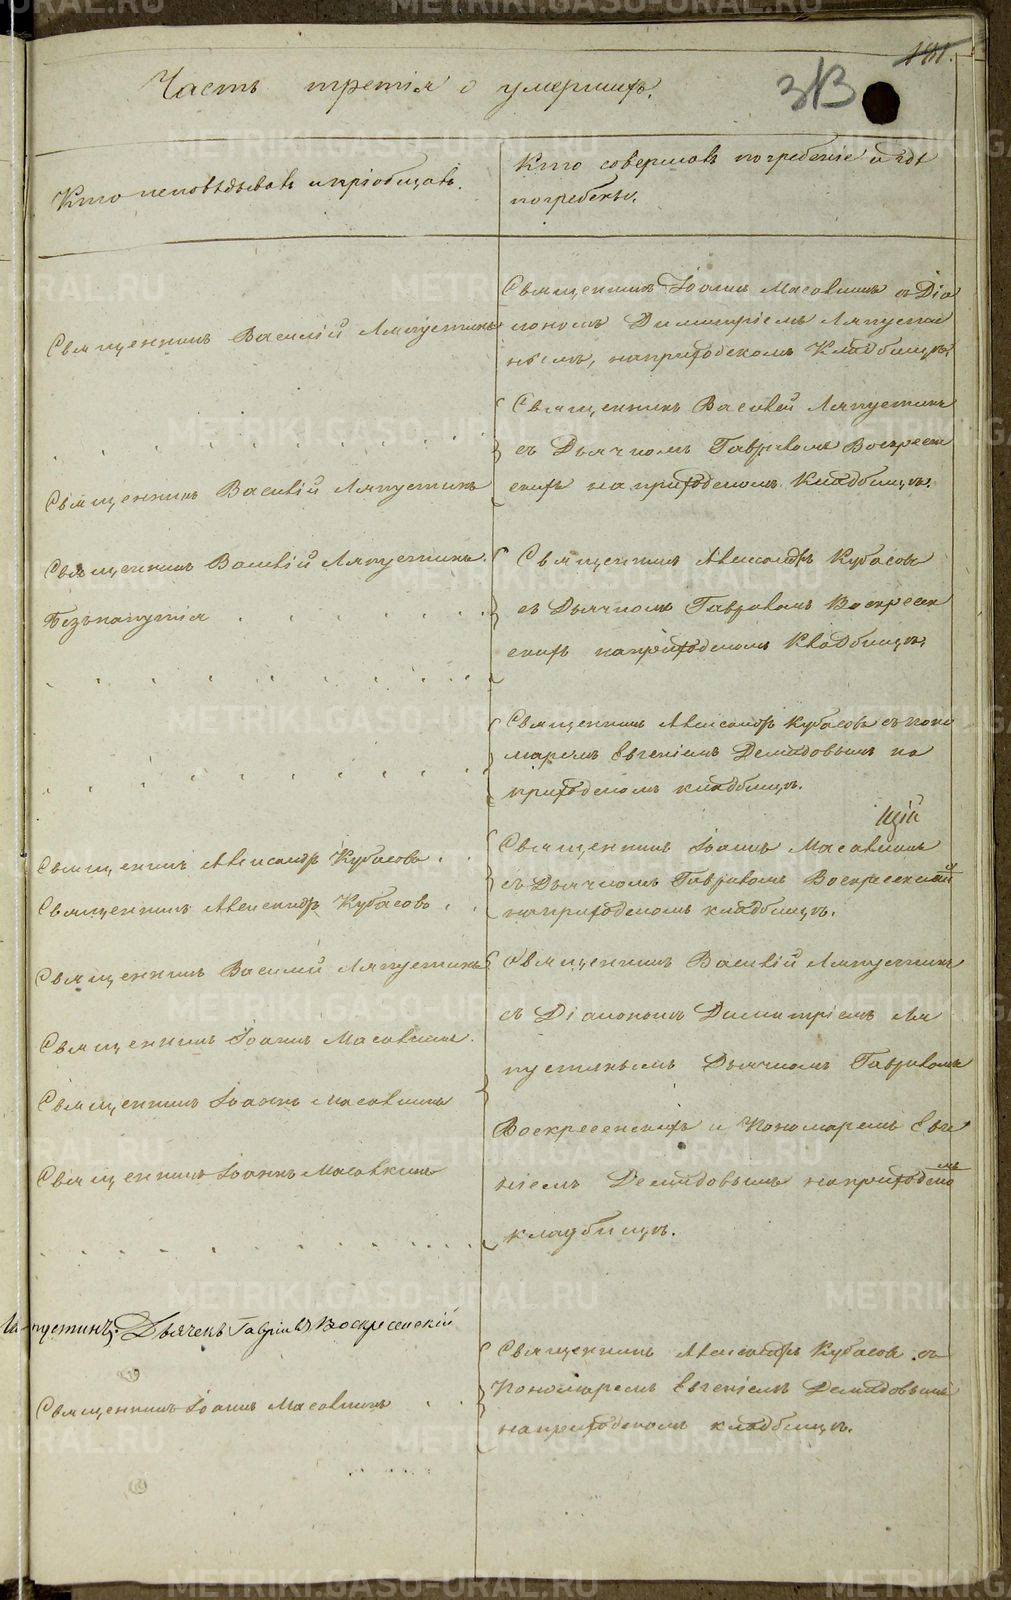 181.
313
Часть третія о умершихъ.
Кто исповѣдывалъ и пріобщалъ.
Кто совершалъ погребеніе и гдѣ
погребены.
Священникъ Василій Ляпустинъ
Священникъ Іоаннъ Масалкинъ съ Діа
кономъ Димитріемъ Ляпусти
нымъ, на приходскомъ Кладбищѣ.
Священникъ Василій Ляпустинъ
Священникъ Василій Ляпустинъ
съ Дьячкомъ Гавріиломъ Воскресен
скимъ на приходскомъ Кладбищѣ.
Священникъ Василій Ляпустинъ.
Безъ напутія
Священникъ Александръ Кубасовъ
съ Дьячкомъ Гавріиломъ Воскресен
скимъ на приходскомъ Кладбищѣ.
Священникъ Александръ Кубасовъ съ поно
маремъ Евгеніемъ Демидовымъ на
приходскомъ кладбищѣ.
Священникъ Александръ Кубасовъ
Священникъ Александръ Кубасовъ
Священникъ Іоаннъ Масалкинъ
съ Дьячкомъ Гавріиломъ Воскресенскимъ
на приходскомъ кладбищѣ.
Священникъ Василій Ляпустинъ
Священникъ Іоаннъ Масалкинъ.
Священникъ Іоаннъ Масалкинъ
Священникъ Іоаннъ Масалкинъ
Священникъ Василій Ляпустинъ
съ Діакономъ Димитріемъ Ля
пустинымъ Дьячкомъ Гавріиломъ
Воскресенскимъ и Пономаремъ Евге
ніемъ Демидовымъ на приходскомъ
кладбищѣ.
Ляпустинъ. Дьячекъ Гавріилъ Воскресенскій
Священникъ Іоаннъ Масалкинъ
Священникъ Александръ Кубасовъ съ
Пономаремъ Евгеніемъ Демидовымъ
на приходскомъ кладбищѣ.
METRIKI.GASO-URAL.RU